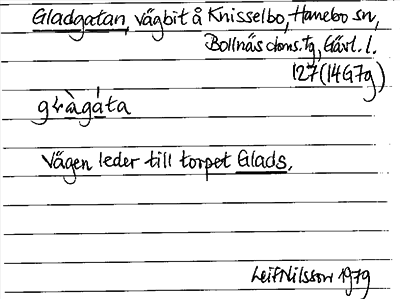 Gladgatan, vägbit å Knisselbo, Hanebo sn,
Bollnäs doms. Tg, Gävl. l.
127 (14G7g)
Vägen leder till torpet Glads.
Leif Nilsson 1979